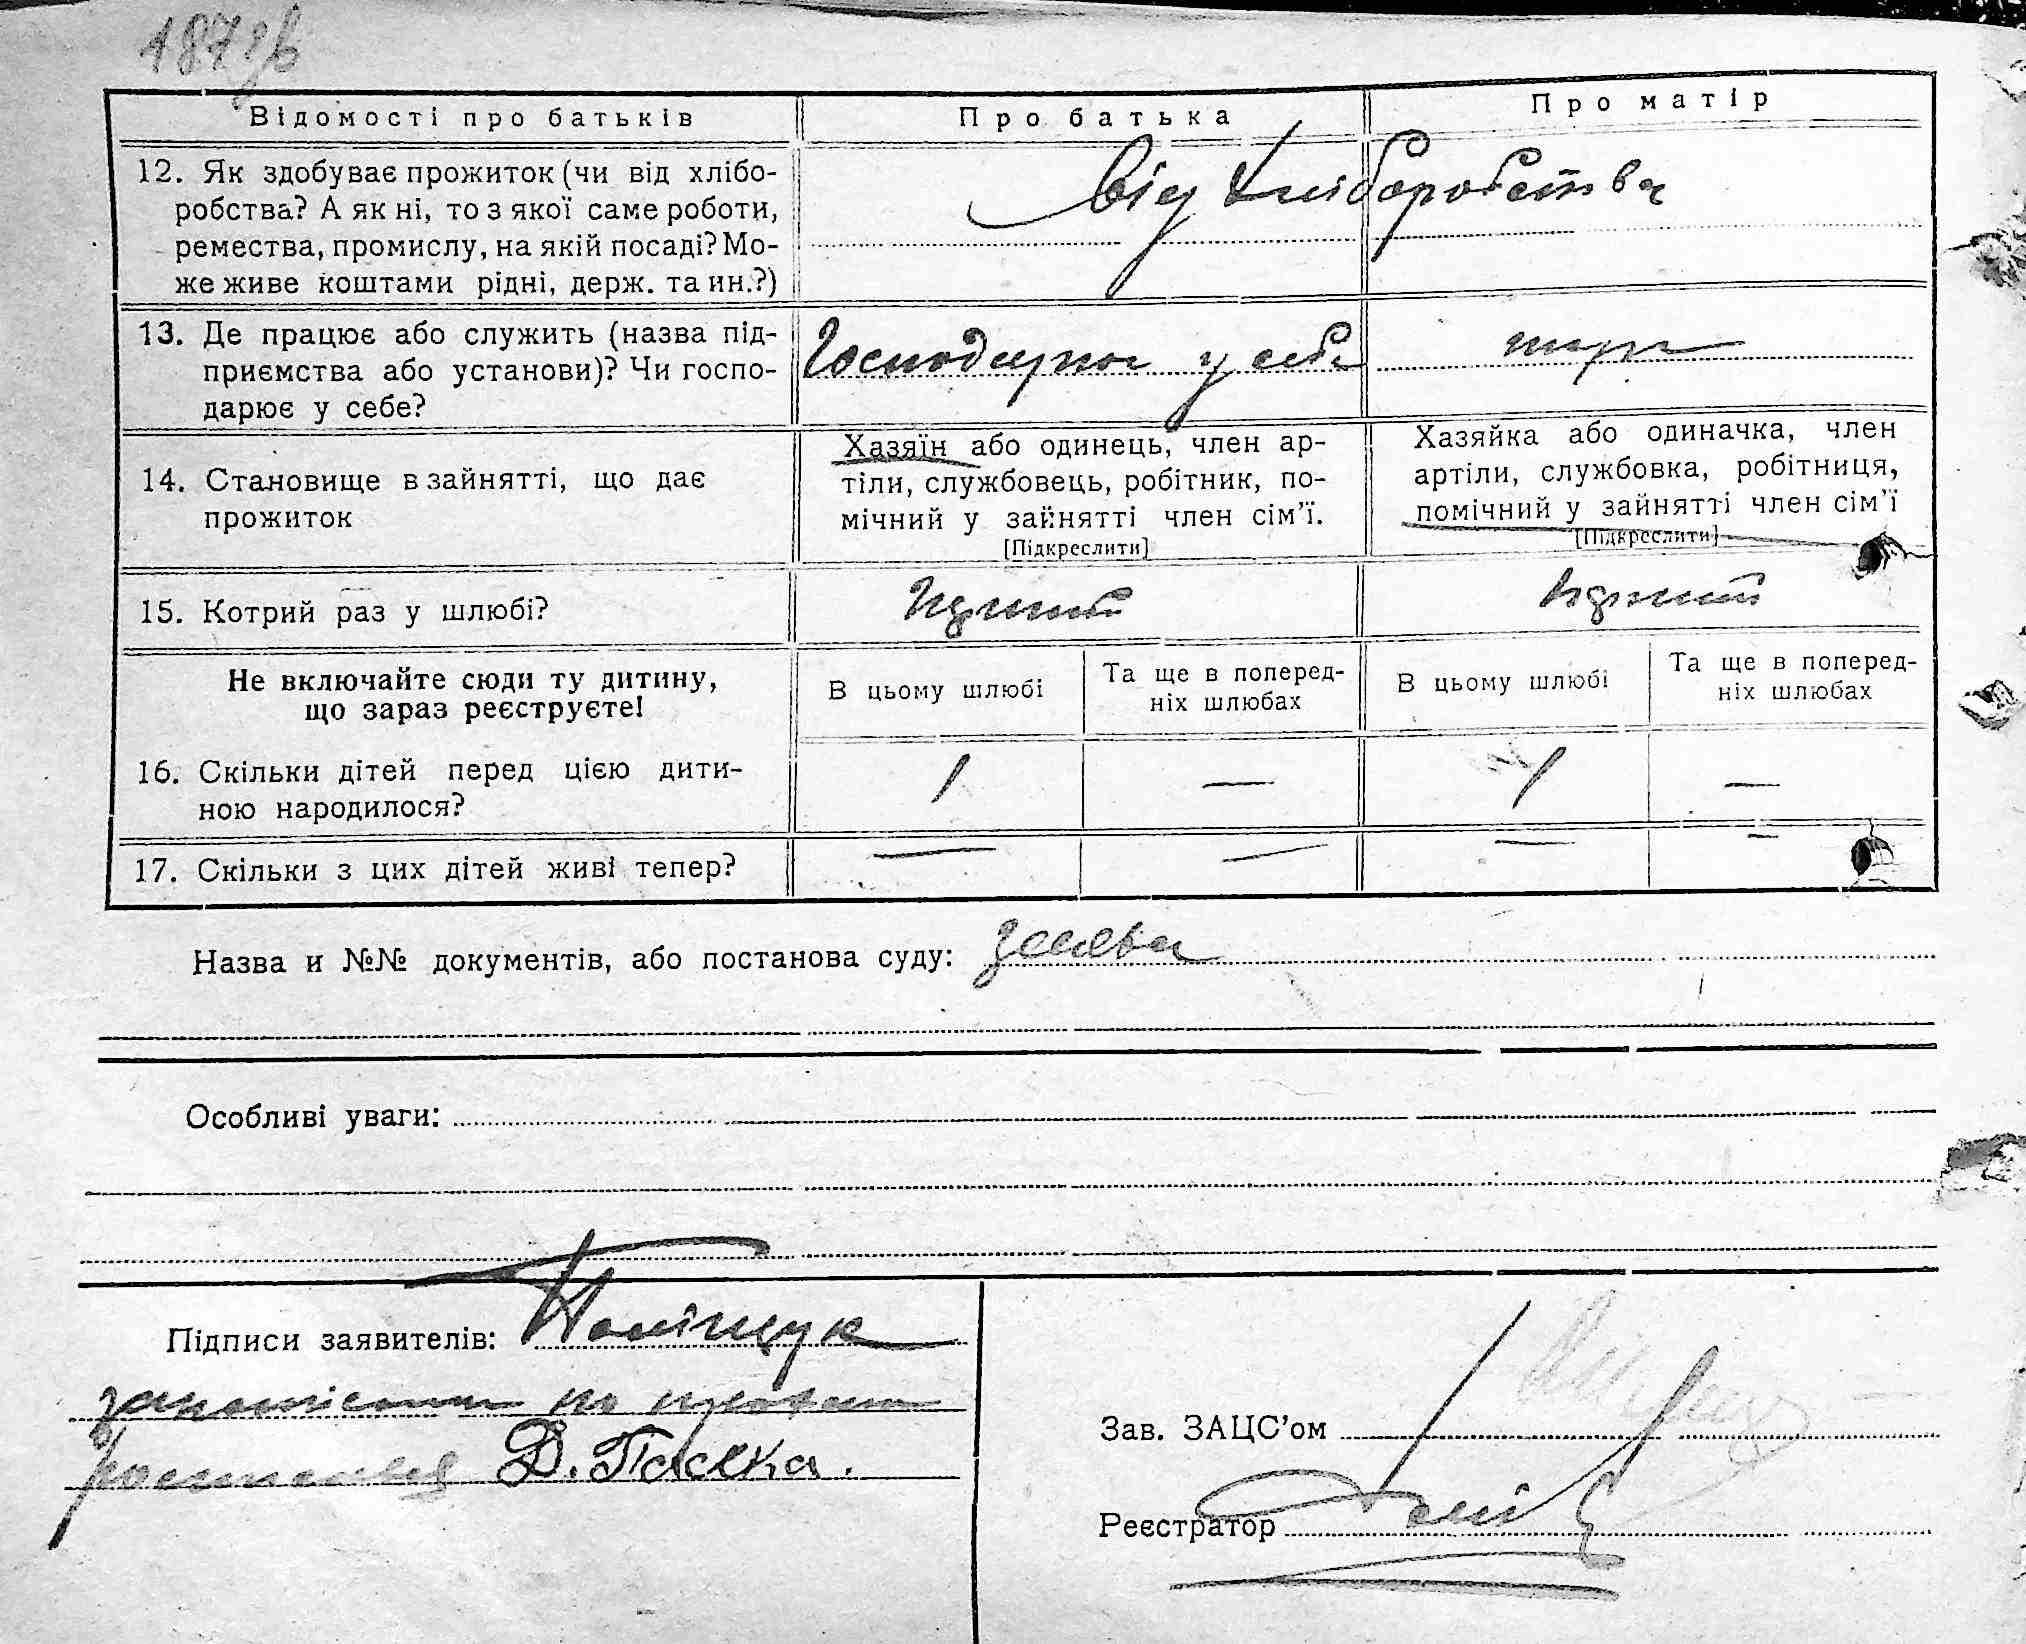 187зв
Відомості про батьків
Про батька
Про матір
12. Як здобуває прожиток (чи від хлібо-
робства? А як ні, то з якої саме роботи,
ремества, промислу, на якій посаді? Мо-
же живе коштами рідні, держ. та ин.?)
від хліборобства
13. Де працює або служить (назва під-
приємства або установи)? Чи госпо-
дарює у себе?
Господарює у себе
14. Становище в зайнятті, що дає
прожиток
Хазяїн або одинець, член ар-
тіли, службовець, робітник, по-
мічний у зайнятті член сім'ї.
[Підкреслити]
Хазяйка або одиначка, член
артіли, службовка, робітниця,
помічний у зайнятті член сім'ї
[Підкреслити]
15. Котрий раз у шлюбі?
Не включайте сюди ту дитину,
що зараз реєструєте!
В цьому шлюбі
Та ще в поперед-
ніх шлюбах
В цьому шлюбі
Та ще в поперед-
ніх шлюбах
16. Скільки дітей перед цією дити-
ною народилося?
1 — 1 —
17. Скільки з цих дітей живі тепер?
— — — —
Назва и №№ документів, або постанова суду: заява
Особливі уваги:
Підписи заявителів: Поліщук
Д. Пасека.
Зав. ЗАЦС'ом
Реєстратор